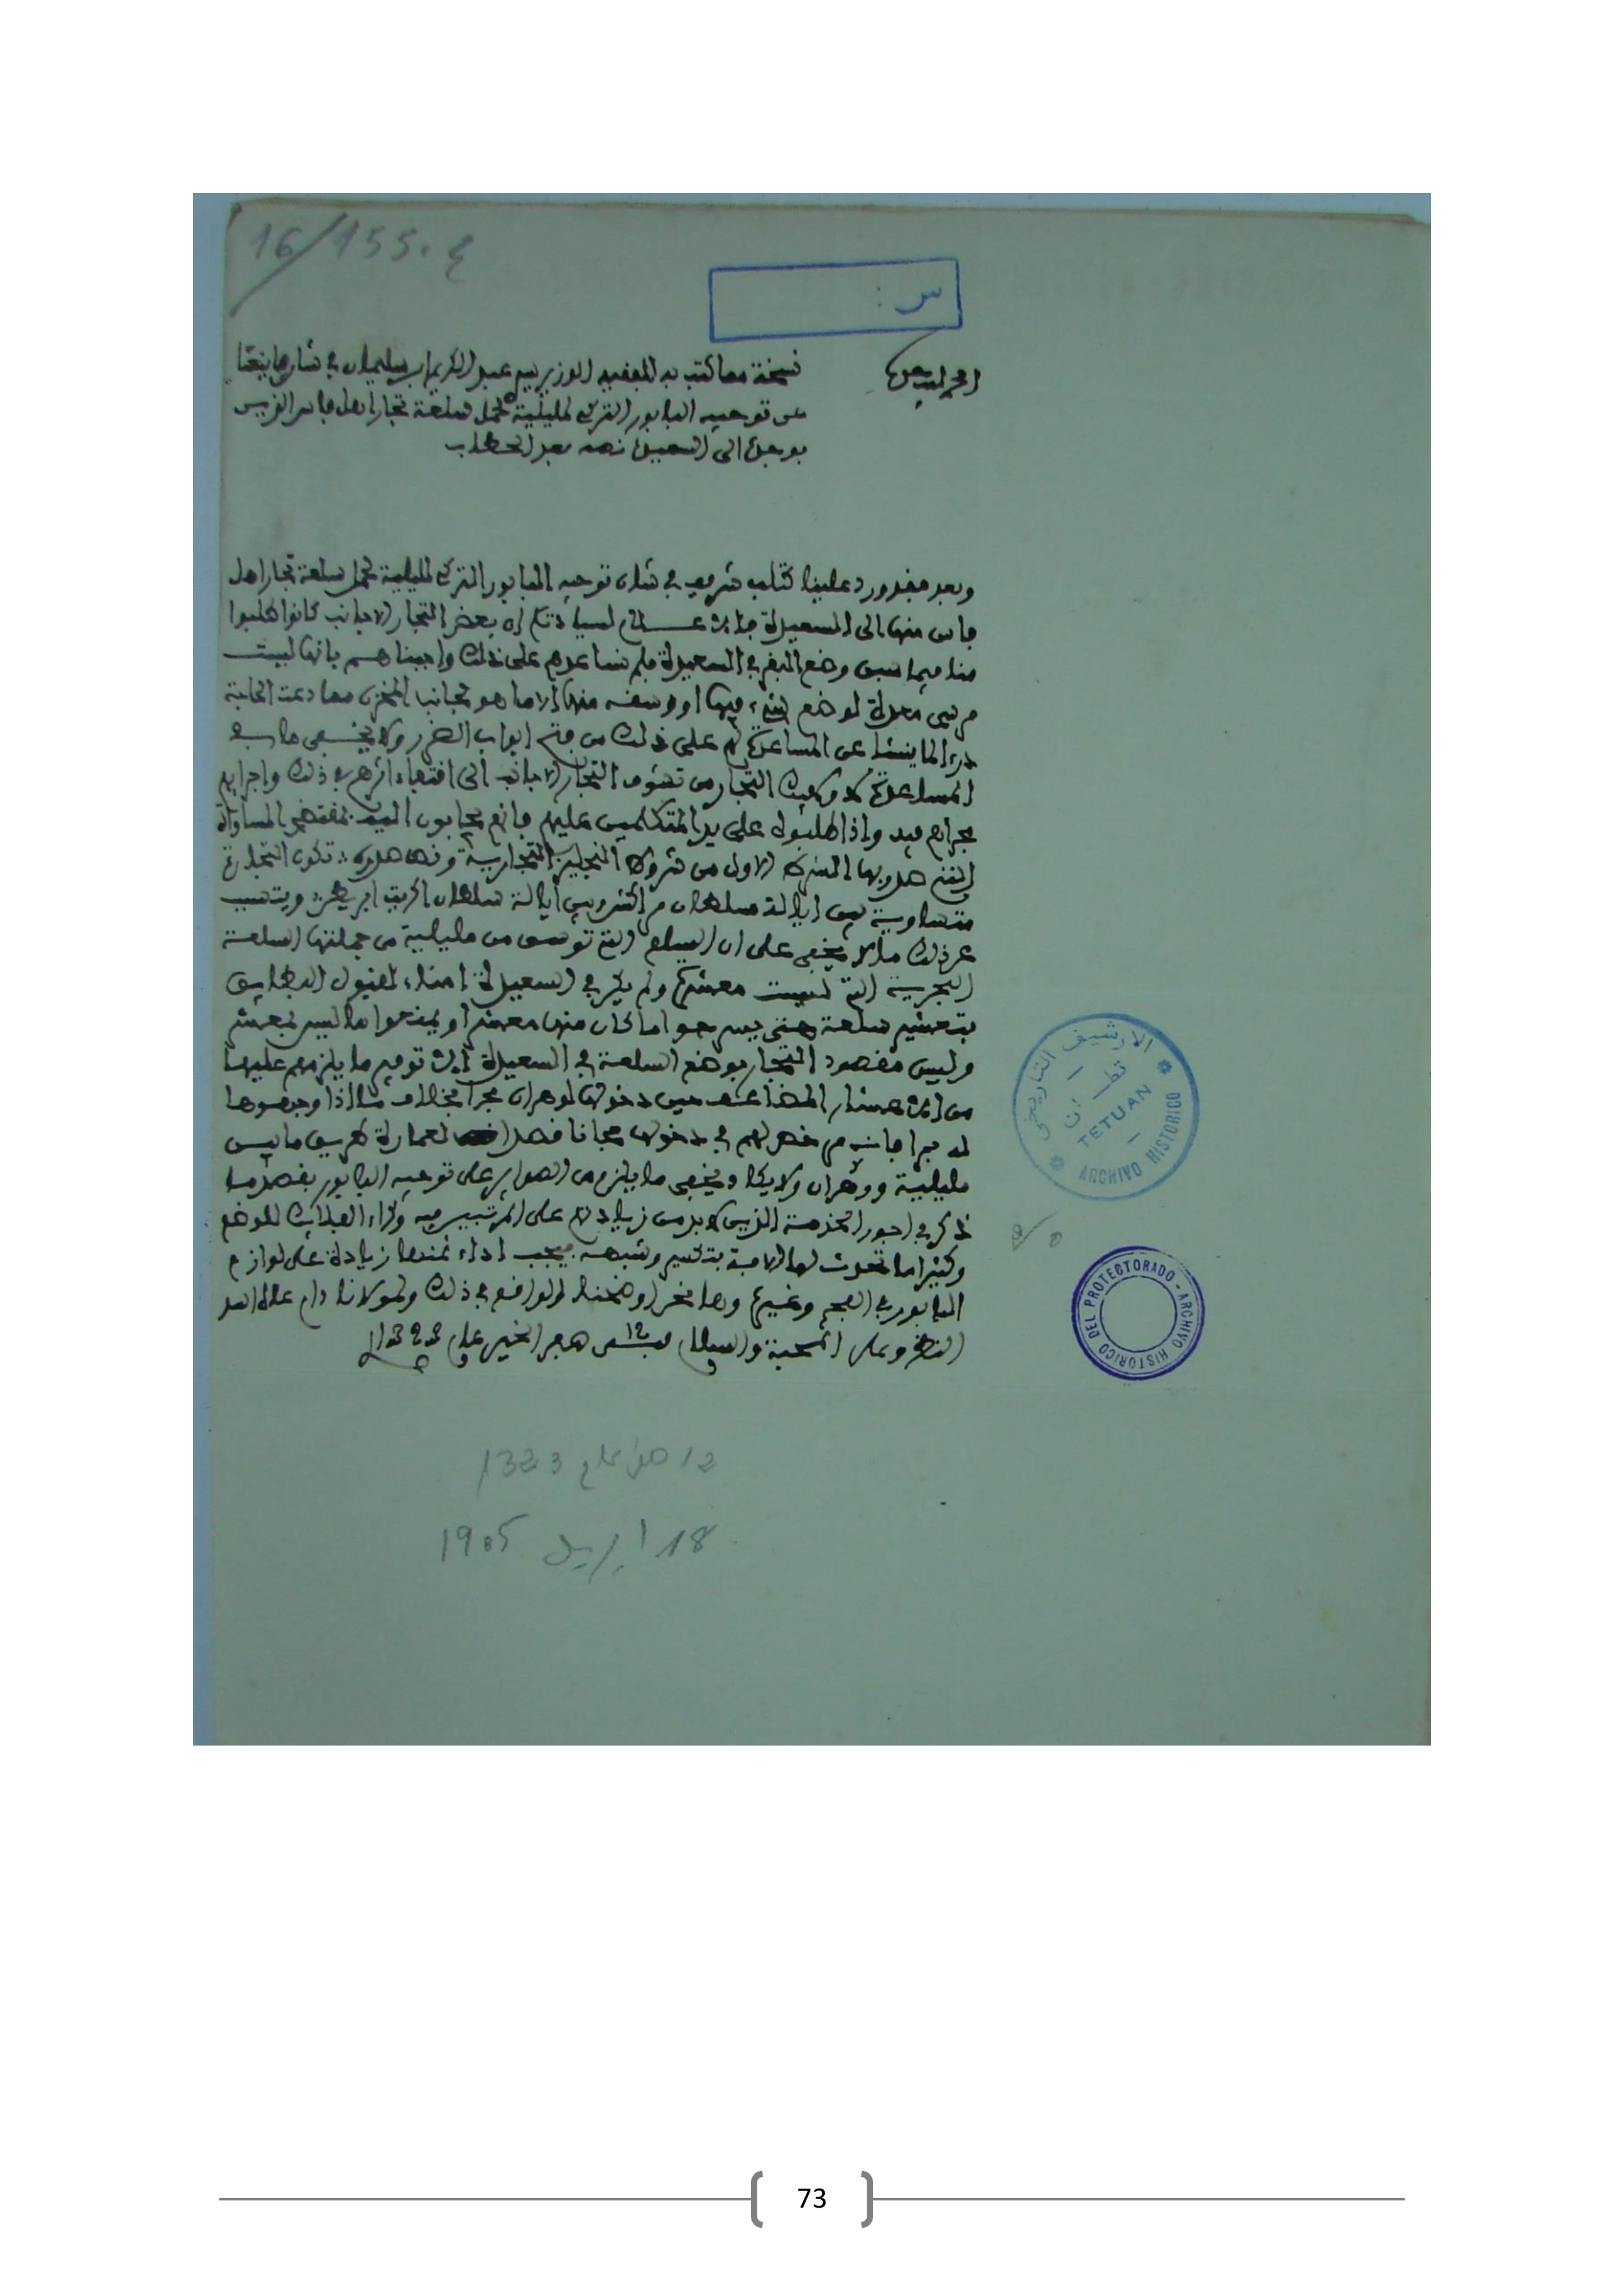 16/155.ع
س :
الحمد لله وحده
نسخة مما كتب به للفقيه الوزير سيد عبد الكريم ابن سليمان في شان ما ينشا
من توجيه البابور التركي لمليلية لحمل سلعة تجار اهل فاس الذين
بوجدة الى السعيدية نصه بعد الخطاب
وبعد فقد ورد علينا كتاب شريف في شان توجيه البابور التركي لمليلية لحمل سلعة تجار اهل
فاس منها الى السعيدية لسيادتكم ان بعض التجار الاجانب كانوا طلبوا
منا فيما سبق وضع البقر في السعيدية فلم نساعدهم على ذلك واجبناهم بانها ليست
مرسى معدة لوضع شيء فيها او وسقه منها الا ما هو لجانب المخزن مما دعت الحاجة
لما ينشا عن المساعدة على ذلك من فتح ابواب الضرر ولا يخفى ما في
المساعدة التجار من تشوف التجار الاجانب الى اقتفاء اثرهم في ذلك واجرايهم
مجراهم فيه واذا طلبوه على يد المتكلمين عليهم فانهم يجابون اليه بمقتضى المساواة
التي صدر بها الشرط الاول من شروط النجليز التجارية ونص صدره تكون التجارة
متساوية بين ايالة سلطان مراكش وبين ايالة سلطان اكريت ابريطن ويتسبب
عن ذلك ما لا يخفى على ان السلع التي توسق من مليلية من جملتها السلعة
البحرية التي ليست معشرة ولم يكن في السعيدية امناء لقبول البطايق
بتعشير سلعة حتى يسرحوا ما كان منها معشرا او يمنعوا ما ليس بمعشر
وليس مقصود التجار بوضع السلعة في السعيدية الا توفير ما يلزمهم عليها
من اعشار حين دخولها لوهران بخلاف ما اذا وجهوها
دخولها مجانا قصدا لعمارة طريق ما بين
مليلية ووهران ولا يخفى ما يلزم من الصواير على توجيه البابور بقصد ما
ذكر في اجور الخدمة الذين لا بد من زيادتهم على المرتبين فيه وكراء الفلايك للوضع
وكثيرا ما تحدث لها الافة بتكسير وشبهه فيجب اداء ثمنها زيادة على لوازم
البابور في الفحم وغيره وها نحن اوضحنا الواقع في ذلك ولمولانا دام علاه
النظر وعلى المحبة والسلام في 12 صفر الخير عام 1323
12 صفر عام 1323
18 ابريل 1905
الارشيف التاريخي
تطوان
TETUAN
ARCHIVO HISTORICO
DEL PROTECTORADO - ARCHIVO HISTORICO
73